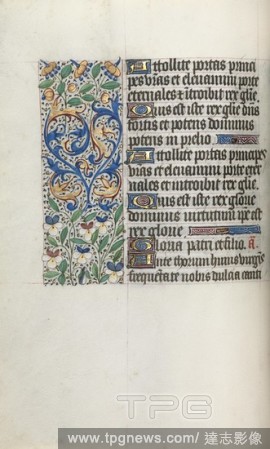 Attollite portas princi
pes vr̄as et eleuamini porte
eternales & ītroibit rex glīe.
Quis est iste rex glīe dn̄s
fortis et potens dominus
potens in prelio.
Attollite portas principes
vr̄as et eleuamini porte eter
nales et introibit rex glīe.
Quis est iste rex glorie
dominus virtutum ip̄e est
rex glorie.
Gloria patri et filio. ā.
Ante thorum huius v̄rgīs
frequētate nobis dulcia canti
TPG
www.tpgnews.com/達志影像